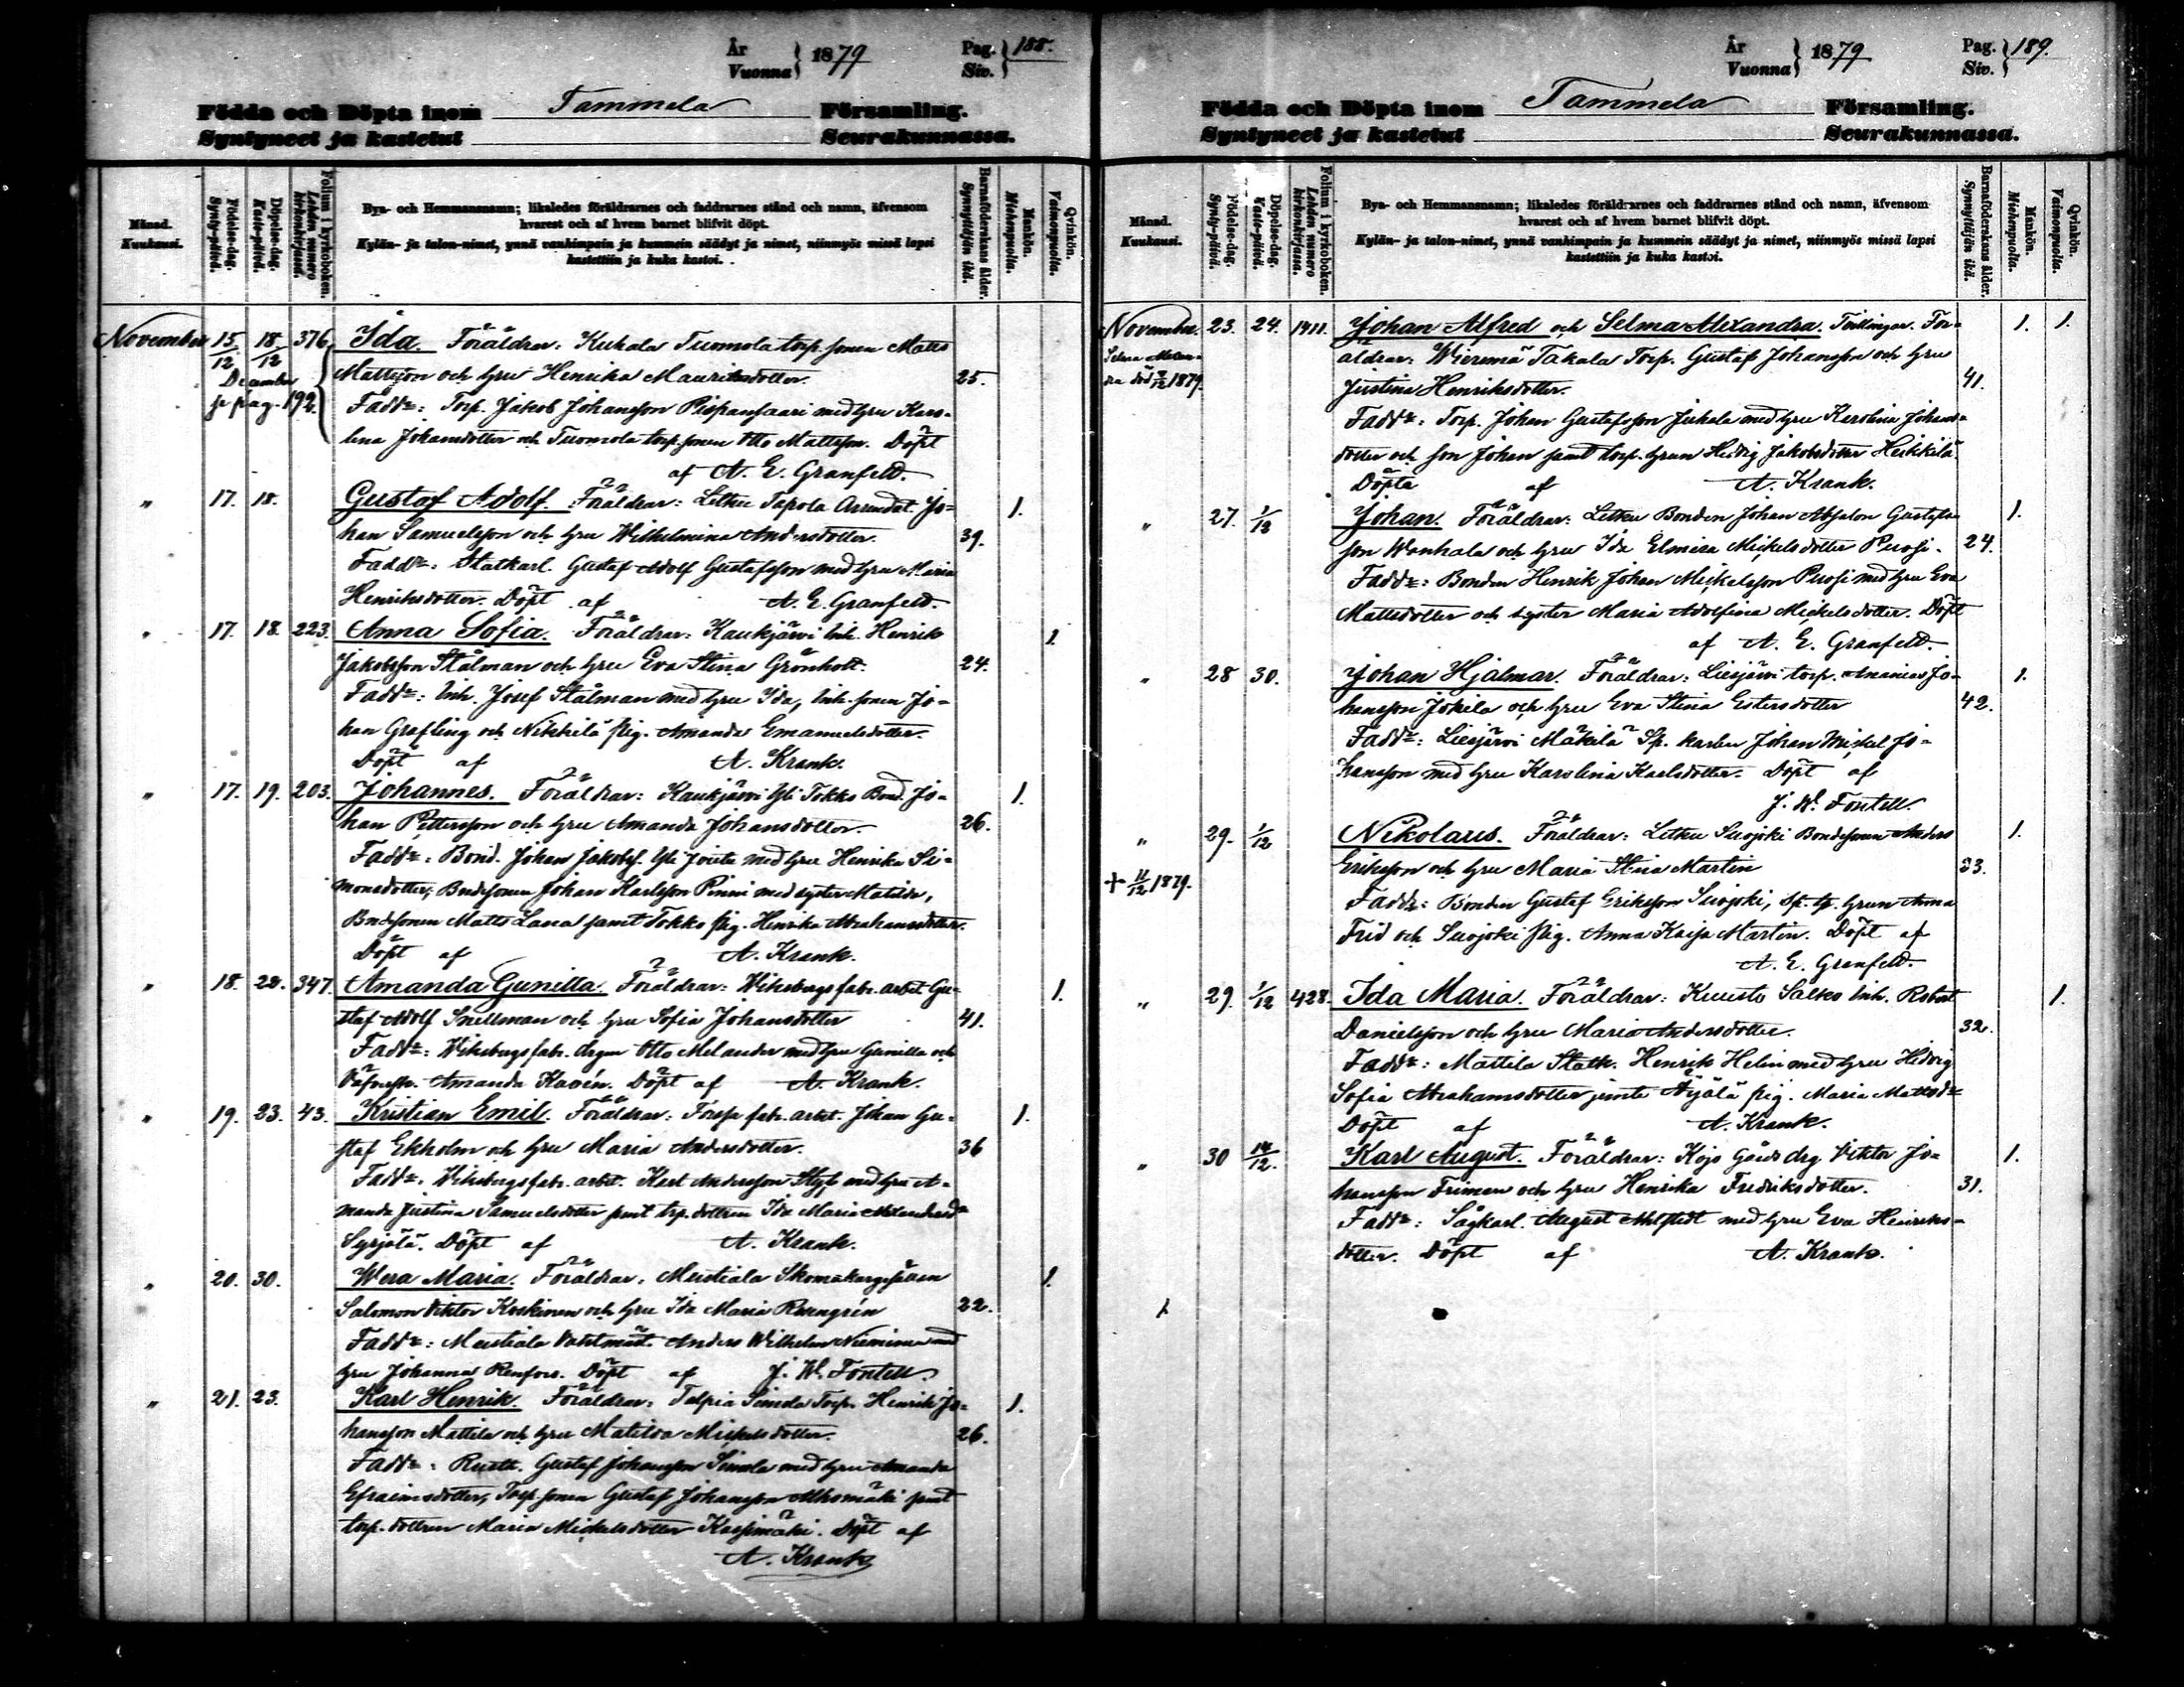 År
Vuonna } 1879 Pag.
Siv. } 188.
Födda och Döpta inom Tammela Församling.
Syntyneet ja kastetut Seurakunnassa.
Månad.
Kuukausi.
Födelse-dag.
Synty-päivä.
Döpelse-dag.
Kaste-päivä.
Folium i kyrkoboken.
Lehden numero kirkonkirjassa.
Bya- och Hemmansnamn; likaledes föräldrarnes och faddrarnes stånd och namn, äfvensom
hvarest och af hvem barnet blifvit döpt.
Kylän- ja talon-nimet, ynnä vanhimpain ja kummein säädyt ja nimet, niinmyös missä lapsi
kastettiin ja kuka kastoi.
Barnaföderskans ålder.
Synnyttäjän ikä.
Mankön.
Miehenpuolia.
Qvinkön.
Vaimonpuolia.
November 15/12 18/12 376 Ida. Föräldrar: Kuhala Tuomola torp. sonen Matts
December Mattsson och hru Henrika Mauritsdotter. 25.
se pag. 192. Faddr: Torp. Jakob Johansson Pispansaari med hru Karo-
lina Johansdotter och Tuomola torp. sonen Otto Mattsson. Döpt
af A. E. Granfeld.
" 17. 18. Gustaf Adolf. Föräldrar: Letku Tapola Arrendat. Jo- 1.
han Samuelsson och hru Wilhelmina Andersdotter. 39.
Faddr: Statkarl Gustaf Adolf Gustafsson med hru Maria
Henriksdotter. Döpt af A. E. Granfeld.
" 17. 18. 223. Anna Sofia. Föräldrar: Kaukjärvi Inh. Henrik 1.
Jakobsson Stålman och hru Eva Stina Grönholt. 24.
Faddr: Inh. Josef Stålman med hru Ida, Inh. sonen Jo-
han Grafling och Nikkilä pig. Amanda Emanuelsdotter.
Döpt af A. Krank.
" 17. 19. 203. Johannes. Föräldrar: Kaukjärvi Yli Tokko Bond. Jo- 1.
han Pettersson och hru Amanda Johansdotter. 26.
Faddr: Bond. Johan Jakobss. Yli med hru Henrika Si-
monsdotter, Bondesonen Johan Karlsson Pinni med syster Matilda,
Bondesonen Matts samt Tokko pig. Henrika Abrahamsdotter.
Döpt af A. Krank.
" 18. 22. 347. Amanda Gunilla. Föräldrar: Wiksbergs fabr. arbet. Gu- 1.
staf Adolf Snellman och hru Sofia Johansdotter 41.
Faddr: Wiksbergs fabr. drgen Otto Melander med hru Gunilla och
Amanda Kavén. Döpt af A. Krank.
" 19. 23. 43. Kristian Emil. Föräldrar: Forss. fabr. arbet. Johan Gu- 1.
staf Ekholm och hru Maria Andersdotter. 36
Faddr. Wiksbergs fabr. arbet. Karl Andersson med hru A-
manda Justina Samuelsdotter samt trp. dottren Ida Maria
Syrjälä. Döpt af A. Krank.
" 20. 30. Wera Maria. Föräldrar: Mustiala Skomakargesällen 1.
Salomon Viktor Koskinen och hru Ida Maria Rosengrén 22.
Faddr: Mustiala Vaktmäst. Anders Wilhelm Nieminen med
hru Johanna Renfors. Döpt af J. W. Fontell.
" 21. 23. Karl Henrik. Föräldrar: Talpia Simola Torp. Henrik Jo- 1.
hansson Mattila och hru Matilda Mickelsdotter. 26.
Faddr: Rustt. Gustaf Johansson Simola med hru Amanda
Efraimsdotter, Torp. sonen Gustaf Johansson samt
torp. dottren Maria Mickelsdotter. Döpt af
A. Krank
År
Vuonna } 1879 Pag.
Siv. } 189.
Födda och Döpta inom Tammela Församling.
Syntyneet ja kastetut Seurakunnassa.
Månad.
Kuukausi.
Födelse-dag.
Synty-päivä.
Döpelse-dag.
Kaste-päivä.
Folium i kyrkoboken.
Lehden numero kirkonkirjassa.
Bya- och Hemmansnamn; likaledes föräldrarnes och faddrarnes stånd och namn, äfvensom
hvarest och af hvem barnet blifvit döpt.
Kylän- ja talon-nimet, ynnä vanhimpain ja kummein säädyt ja nimet, niinmyös missä lapsi
kastettiin ja kuka kastoi.
Barnaföderskans ålder.
Synnyttäjän ikä.
Mankön.
Miehenpuolia.
Qvinkön.
Vaimonpuolia.
November. 23. 24. Johan Alfred och Selma Alexandra. Tvillingar. För- 1. 1.
Selma Alexan- äldrar: Wieremä Takala Torp. Gustaf Johansson och hru
dra död 1879. Justina Henriksdotter. 41.
Faddr: Torp. Johan Gustafsson med hru Karolina Johans-
dotter och son Johan samt torp. hrun Hedvig Jakobsdotter Heikkilä.
Döpta af A. Krank.
" 27. 1/12 Johan. Föräldrar: Letku Bonden Johan Absalon Gustafs- 1.
son Wanhala och hru Ida Elmina Mickelsdotter Puosi. 24.
Faddr: Bonden Henrik Johan Mickelsson Puosi med hru Eva
Mattsdotter och syster Maria Adolfina Mickelsdotter. Döpt
af A. E. Granfeld.
" 28 30. Johan Hjalmar. Föräldrar: Liesjärvi torp. Ananias Jo- 1.
hansson Jokela och hru Eva Stina Estersdotter 42.
Faddr: Liesjärvi Mäkilä Sp. karlen Johan Mickel Jo-
hansson med hru Karolina Karlsdotter. Döpt af
J. W. Fontell.
" 29. 1/12 Nikolaus. Föräldrar: Letku Suojoki Bondesonen Anders 1.
+ 11/12 1879. Eriksson och hru Maria Stina Martin 33.
Faddr: Bonden Gustaf Eriksson Suojoki, Sp. hrun Anna
Frid och Suojoki pig. Anna Kaisa Martin. Döpt af
A. E. Granfeld.
" 29. 1/12 428. Ida Maria. Föräldrar: Kuusto Salko Inh. Robert 1.
Danielsson och hru Maria Andersdotter. 32.
Faddr: Mattila Statk. Henrik Helin med hru Hedvig
Sofia Abrahamsdotter jemte Äijälä pig. Maria Mattsdr
Döpt af A. Krank.
" 30 14/12. Karl August. Föräldrar: Kojo Gårds drg Viktor Jo- 1.
hansson Friman och hru Henrika Fredriksdotter. 31.
Faddr: Sågkarl. August Ahlstedt med hru Eva Henriks-
dotter. Döpt af A. Krank.